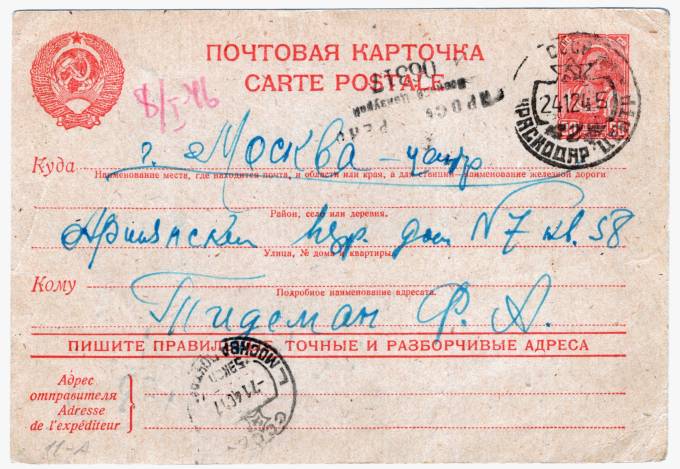 ПОЧТОВАЯ КАРТОЧКА
CARTE POSTALE
8/I 46
06317
Военной Цензурой
СССР
24.12.45
КРАСНОДАР
Куда г. Москва - центр
Наименование места, где находится почта, и области или края, а для станций—наименование железной дороги
Район, село или деревня.
Армянский пер. дом N 7 кв. 58
Улица, № дома и квартиры
Кому
Подробное наименование адресата.
Тидеман Ф. А.
ПИШИТЕ ТОЧНЫЕ И РАЗБОРЧИВЫЕ АДРЕСА
Адрес
отправителя
Adresse
de l'expéditeur
Г. МОСКВА
СССР
11-А